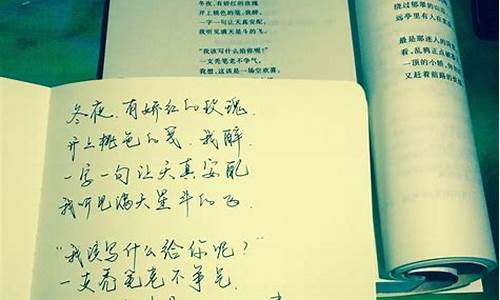 冬夜,有娇红的玫瑰
开上桃色的笺,我醉,
一字一句让天真安配,
我听见满天星斗的飞。
"我该写什么给你呢?"
一支秃笔老不争气,
我想,这该是一场空欢喜,
绕过郁翠的山
远亭里有人在
最是那迷人的
看,乱鸦正点破
一顶的小轿,
又赶着前路的
冬夜,有娇红的玫瑰
开上桃色的笺,我醉,
一字一句让天真安配
我听见满天星斗的飞.
"我该写什么给你呢?"
一支秃笔老不争气,